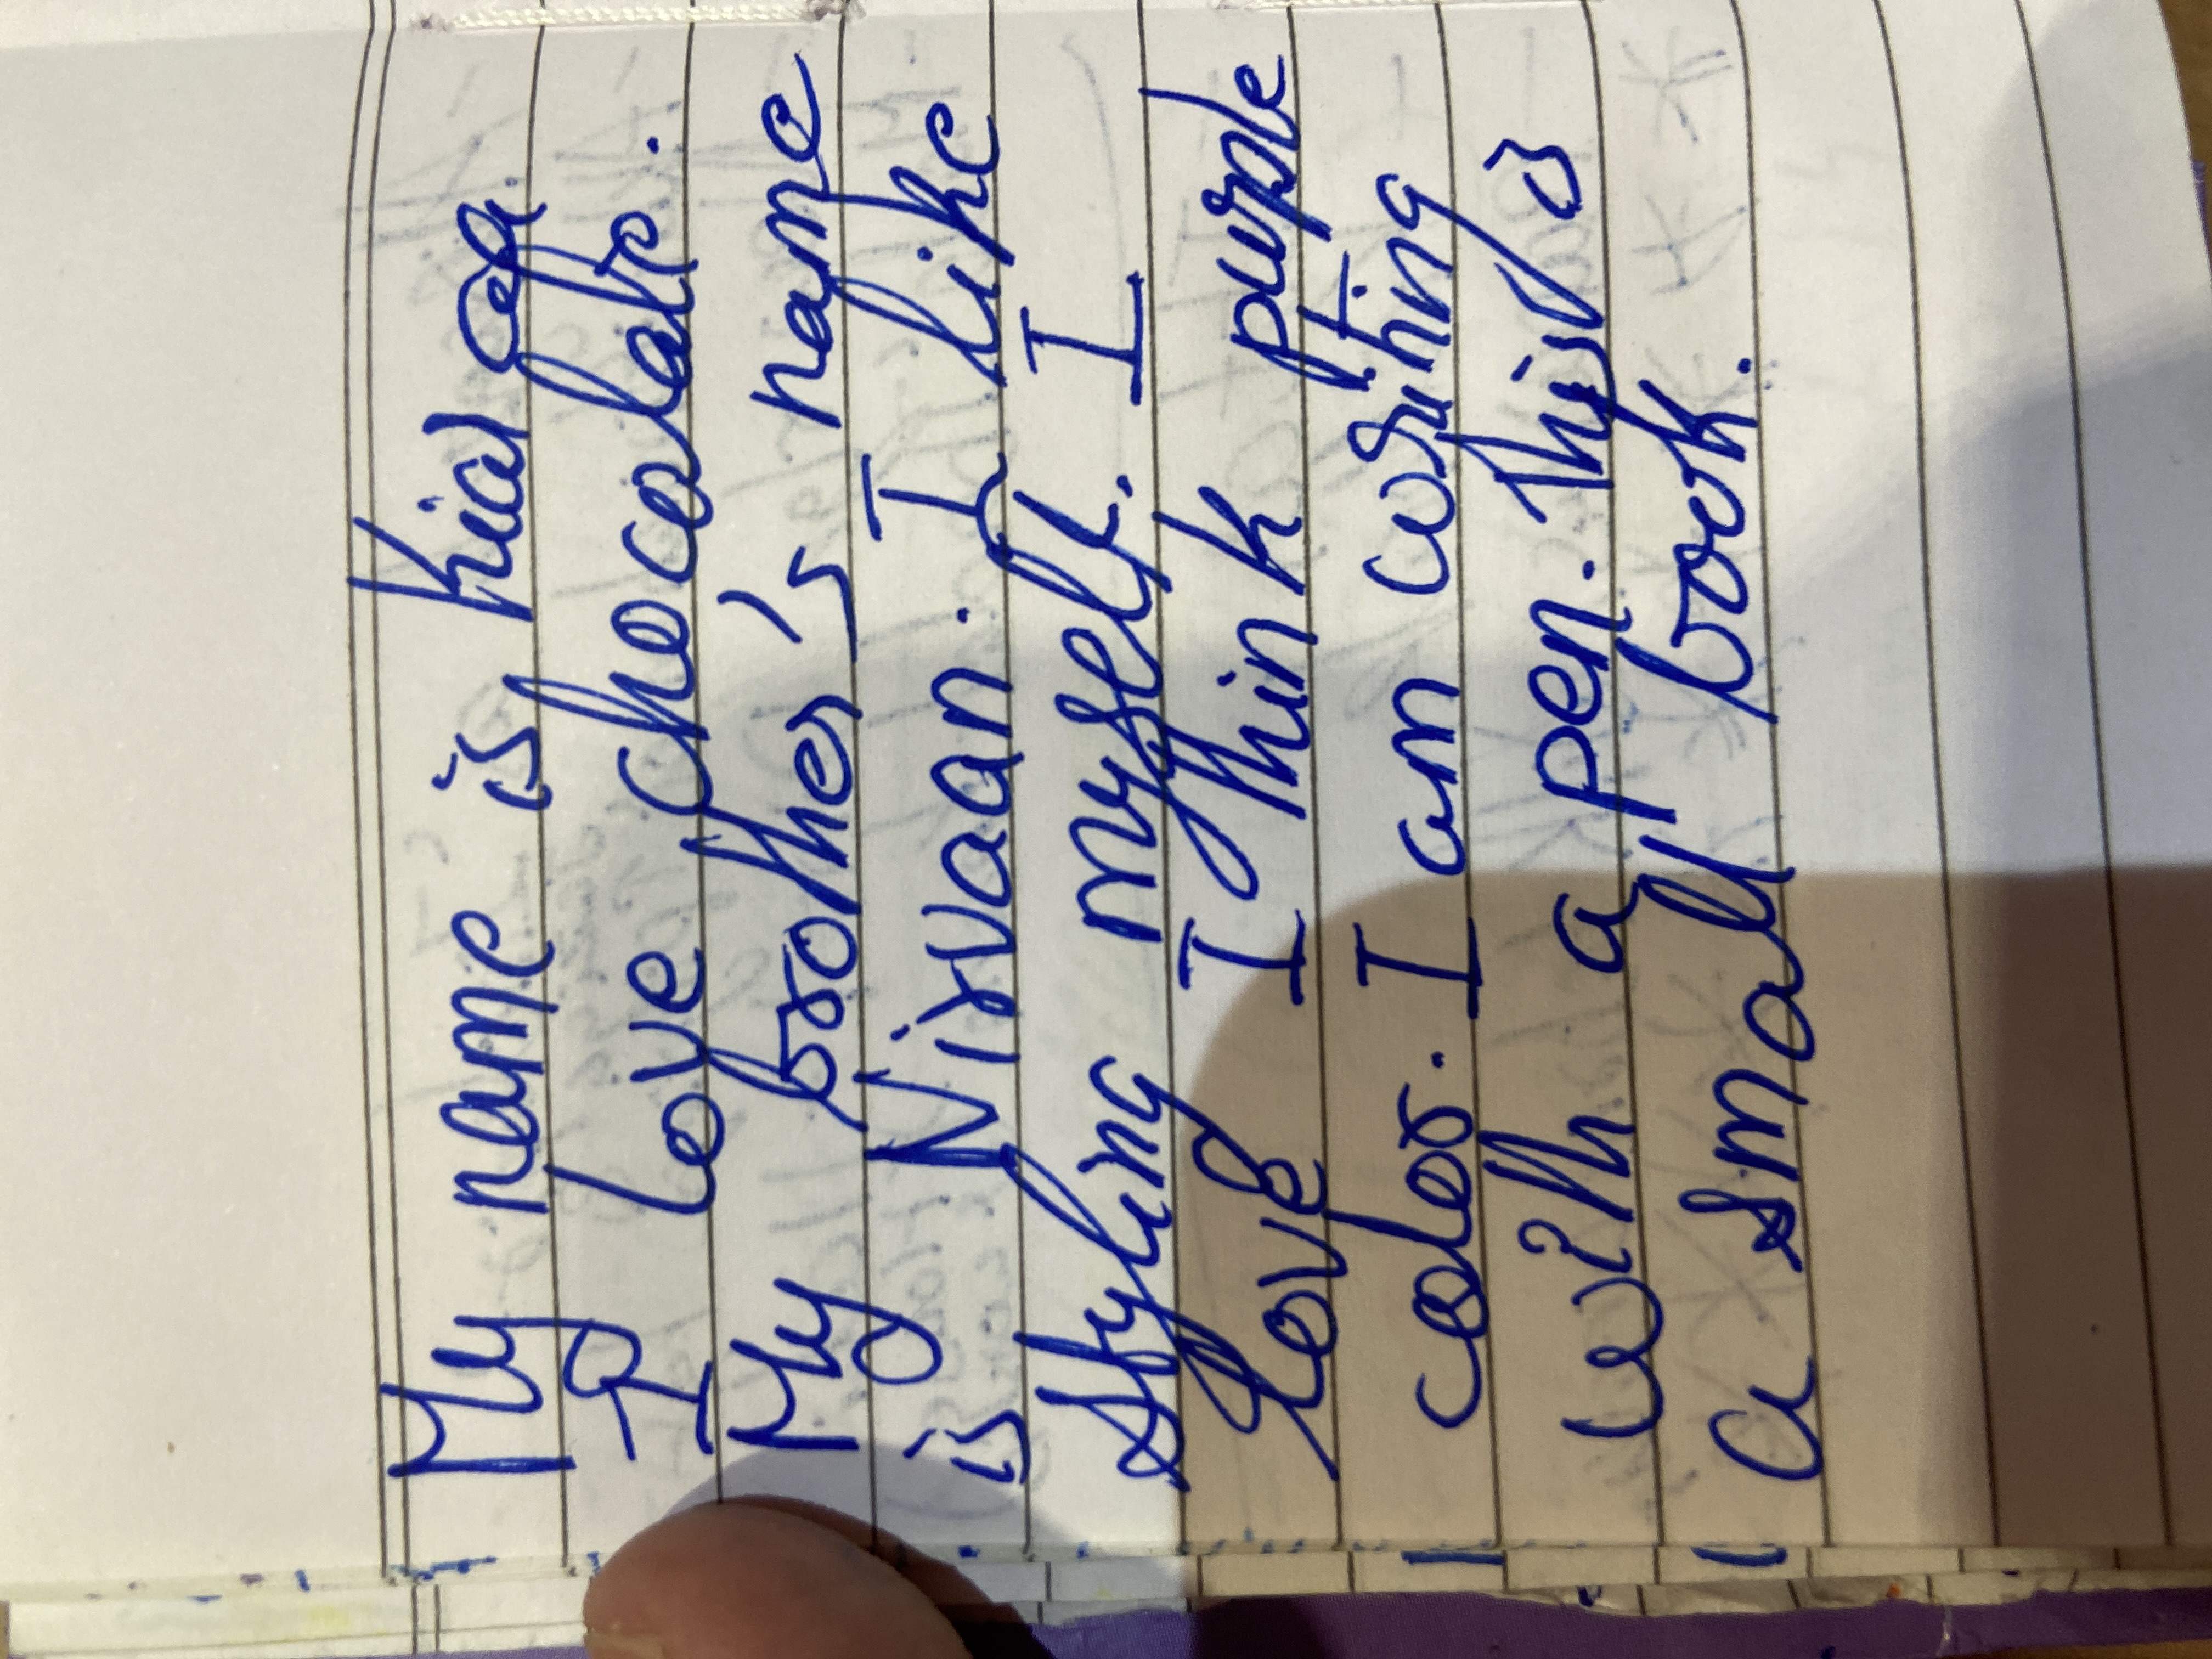 My name is
I love chocolate.
My brother's name
is Nirvaan. I like
styling myself. I
love I think purple
color. I am writing
with a pen. This is
a small book.